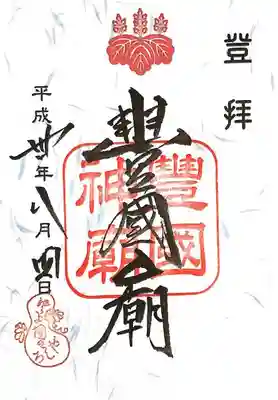 登拝
豊國廟
豊國神廟
平成卅年八月四日